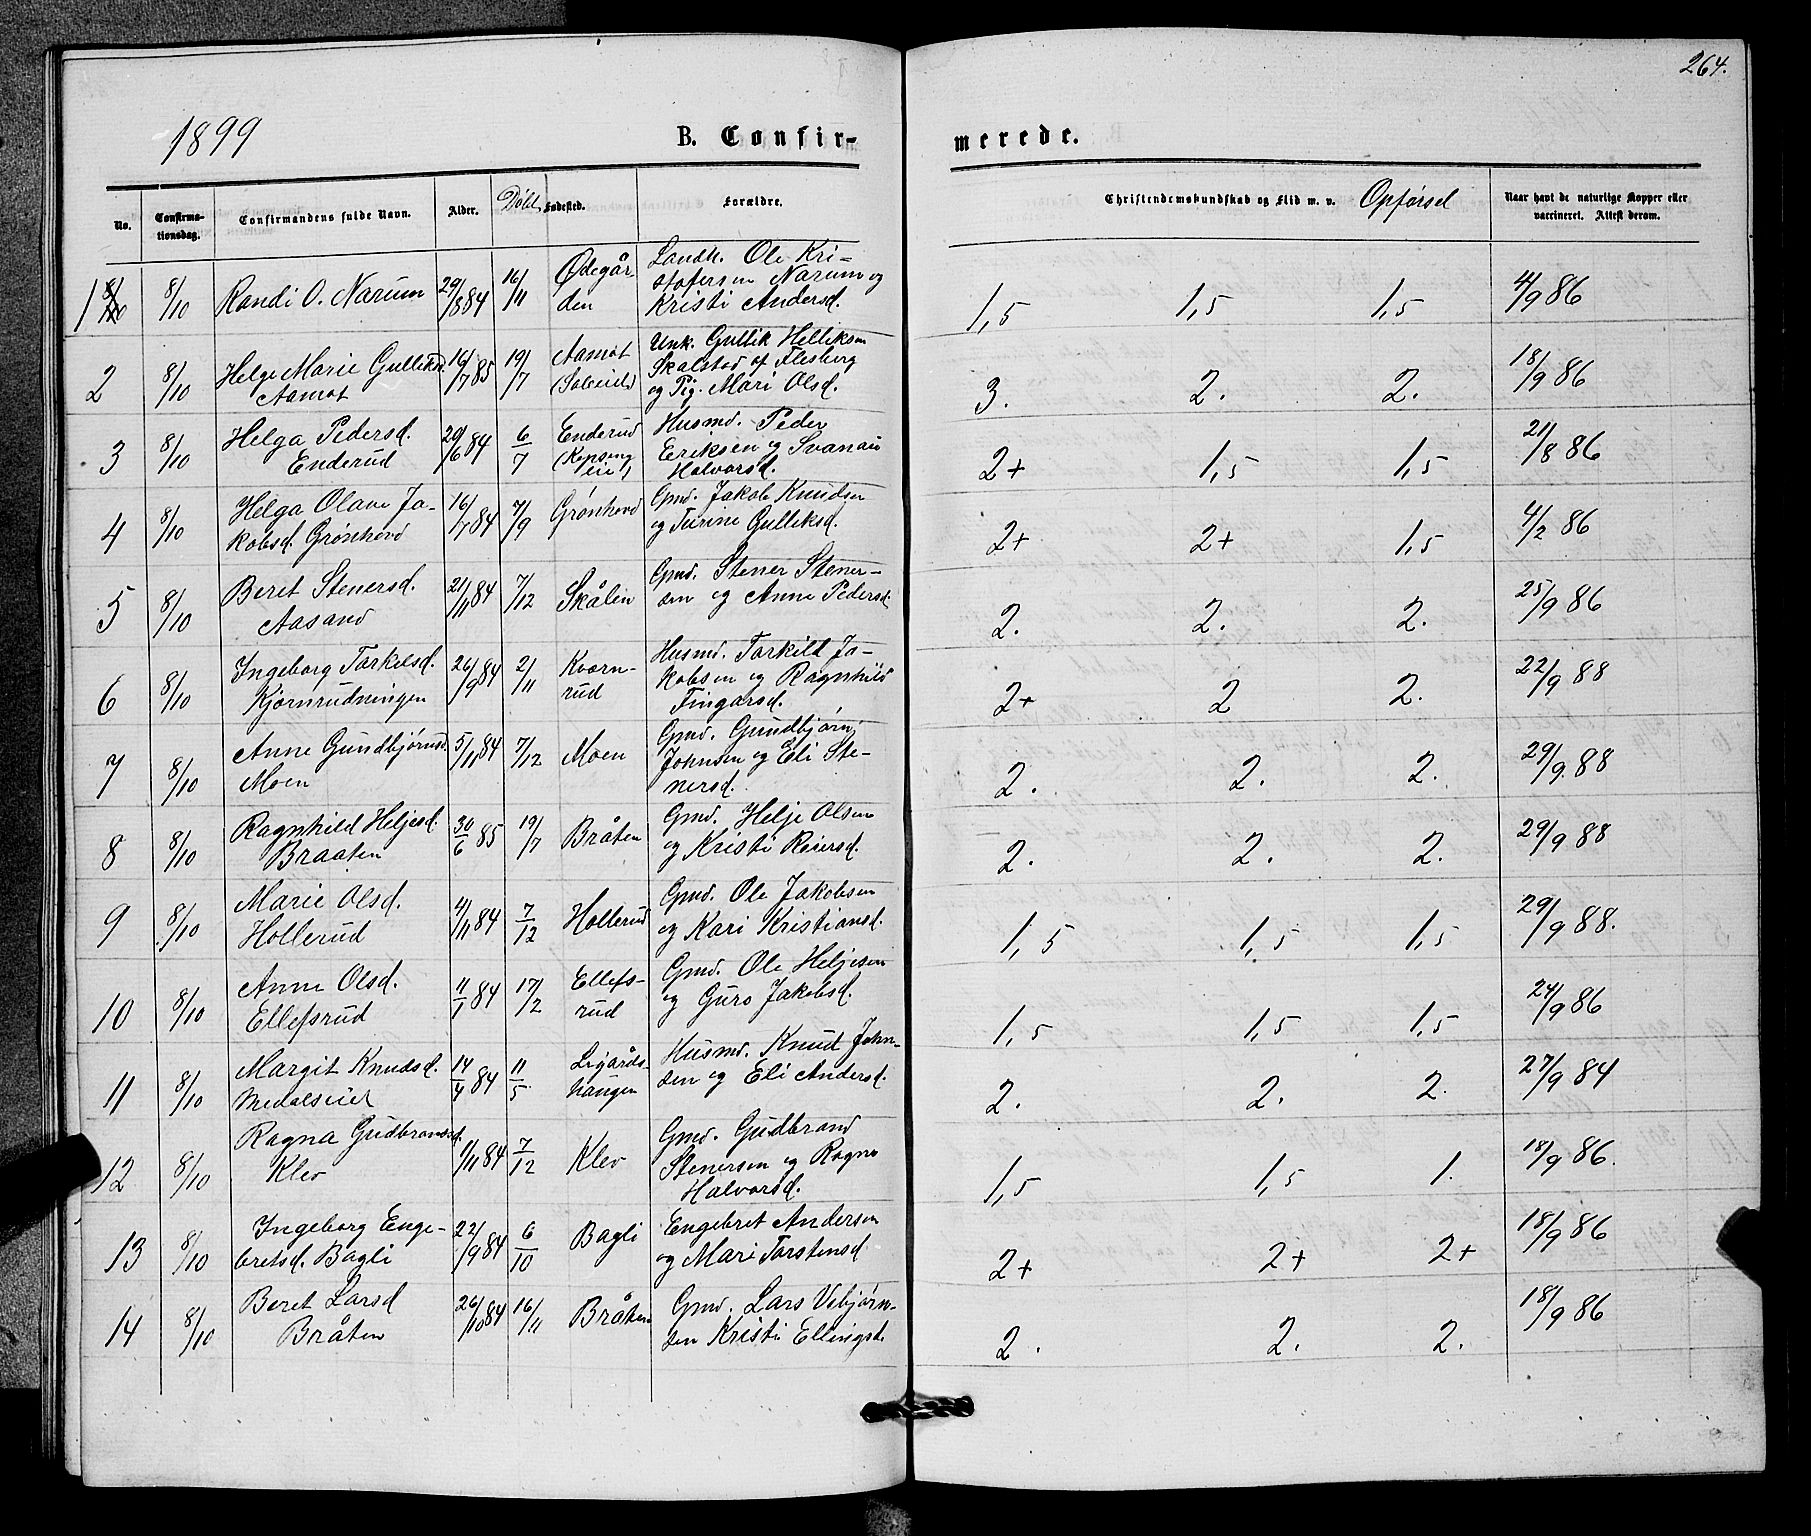 264.
1899 B. Confirmerede.
No. Confirmationsdag. Confirmandens fulde Navn. Alder. Døbt. Fødested. Forældre. Christendomskundskab og Flid m. v. Opførsel Naar havt de naturlige Kopper eller vaccineret. Attest derom.
1 8/10 Randi O. Narum 29/8 84 16/11 Ødegården Landh. Ole Kristofersen Narum og Kristi Andersd. 1,5 1,5 1,5 4/9 86
2 8/10 Helge Marie Gulliksd. Aamot 16/7 85 19/7 Aamot Unk. Gullik Helliksen Skalstad af Flesberg og Pig. Mari Olsd. 3. 2. 2. 18/9 86
3 8/10 Helga Pedersd. Enderud 29/6 84 6/7 Enderud Husmd. Peder Eriksen og Svanau Halvorsd. 2+ 1,5 1,5 21/8 86
4 8/10 Helga Olave Jakobsd. Grønhovd 16/7 84 7/9 Grønhovd Gmd. Jakob Knudsen og Turine Gulliksd. 2+ 2+ 1,5 4/2 86
5 8/10 Beret Stenersd. Aasand 21/11 84 7/12 Skålen Gmd. Stener Stenersen og Anne Pedersd. 2. 2. 2. 25/9 86
6 8/10 Ingeborg Torkelsd. Kjørnrudningen 26/9 84 2/11 Kværnrud Husmd. Torkild Jakobsen og Ragnhild Fingarsd. 2+ 2 2. 22/9 88
7 8/10 Anne Gundbjørnsd. Moen 5/11 84 7/12 Moen Gmd. Gundbjørn Johnsen og Eli Stenersd. 2. 2. 2. 29/9. 88
8 8/10 Ragnhild Heljesd. Braaten 30/6 85 19/7 Bråten Gmd. Helje Olsen og Kristi Reiersd. 2. 2. 2. 29/9 88
9 8/10 Marie Olsd. Hollerud 4/11 84 7/12 Hollerud Gmd. Ole Jakobsen og Kari Kristiansd. 1,5 1,5 1,5 29/9 88.
10 8/10 Anne Olsd. Ellefsrud 11/1 84 17/2 Ellefsrud Gmd. Ole Heljesen og Guro Jakobsd. 1,5 1,5 1,5 24/9 86
11 8/10 Margit Knudsd. Medalseiet 14/4 84 11/5 Ligårdshaugen Husmd. Knud Johnsen og Eli Andersd. 2. 2. 2. 27/9 84
12 8/10 Ragna Gudbrandsd. Klev 1/11 84 7/12 Klev Gmd. Gudbrand Stenersen og Ragne Halvorsd. 1,5 1,5 1. 18/9 86.
13 8/10 Ingeborg Engebretsd. Bagli 22/9 84 6/10 Bagli Engebret Andersen og Mari Torstensd 2+ 2+ 2+ 18/9 86
14 8/10 Beret Larsd Bråten 26/10 84 16/11 Bråten Gmd. Lars Vebjørnsen Kristi Ellingsd. 2. 2. 2. 18/9 86